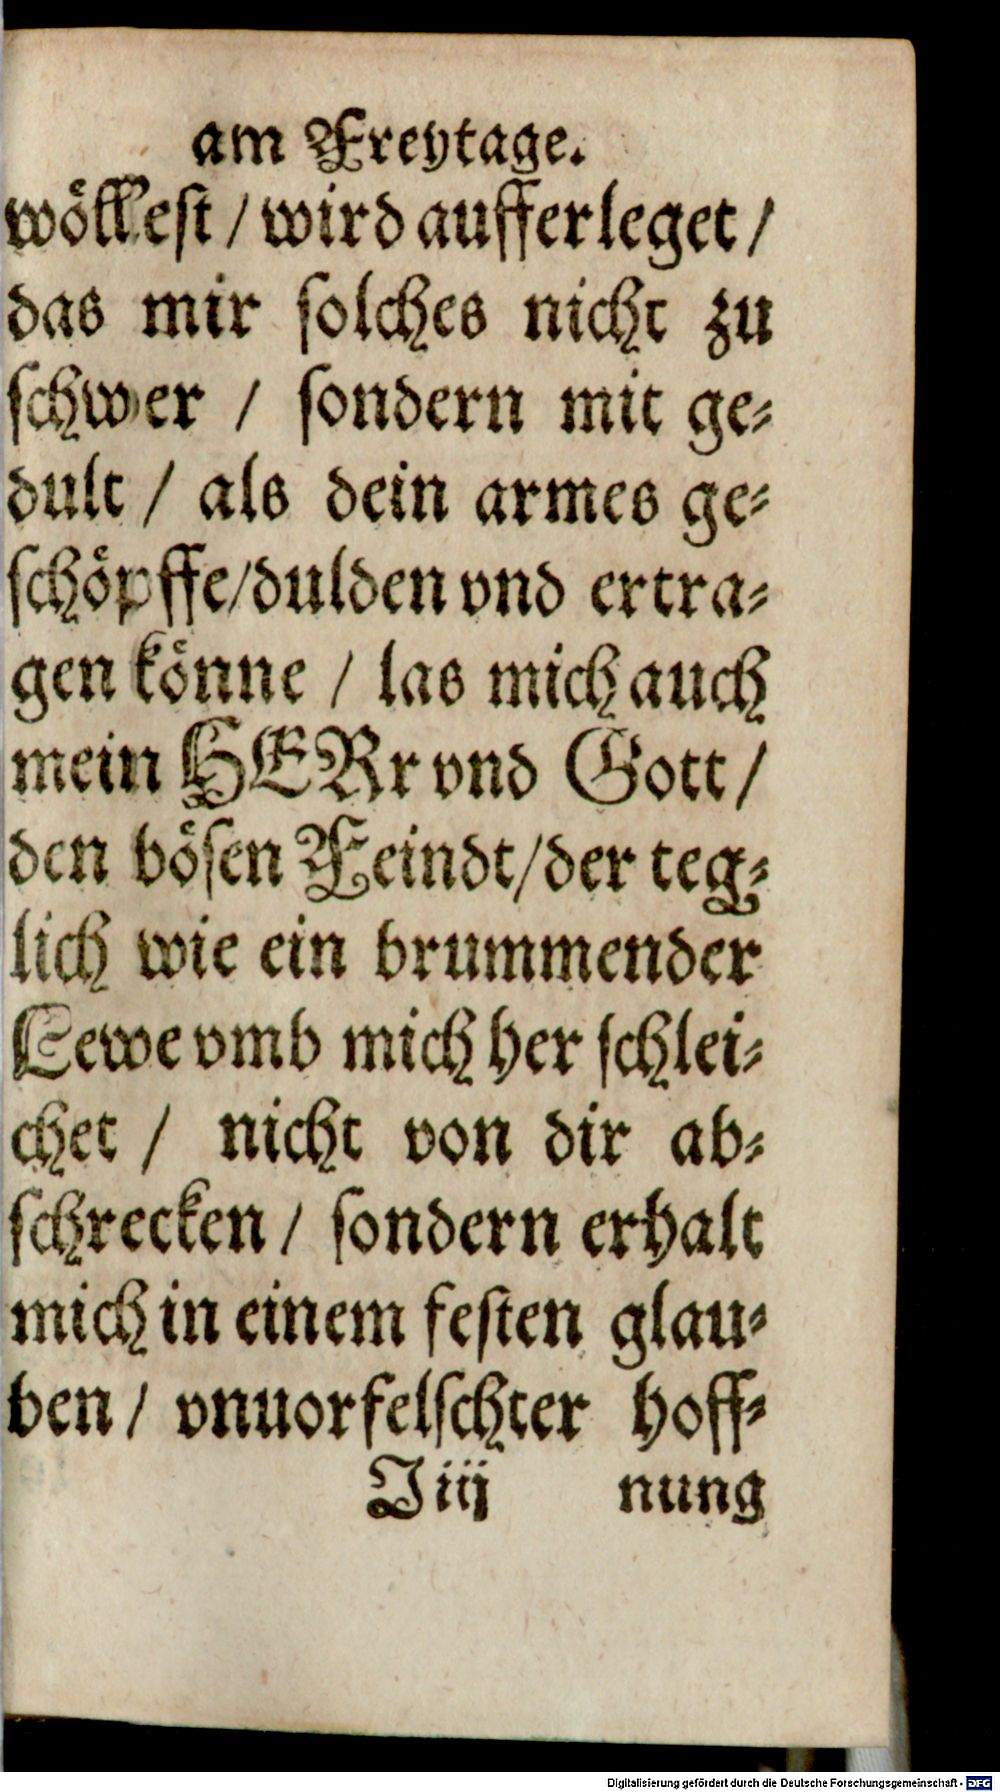 am Freytage.
wöllest / wird aufferleget /
das mir solches nicht zu
schwer / sondern mit ge⸗
dult / als dein armes ge⸗
schöpffe / dulden vnd ertra⸗
gen könne / las mich auch
mein HERr vnd Gott /
den bösen Feindt / der teg⸗
lich wie ein brummender
Lewe vmb mich her schlei⸗
chet / nicht von dir ab⸗
schrecken / sondern erhalt
mich in einem festen glau⸗
ben / vnuorfelschter hoff⸗
J iij nung
Digitalisierung gefördert durch die Deutsche Forschungsgemeinschaft - DFG